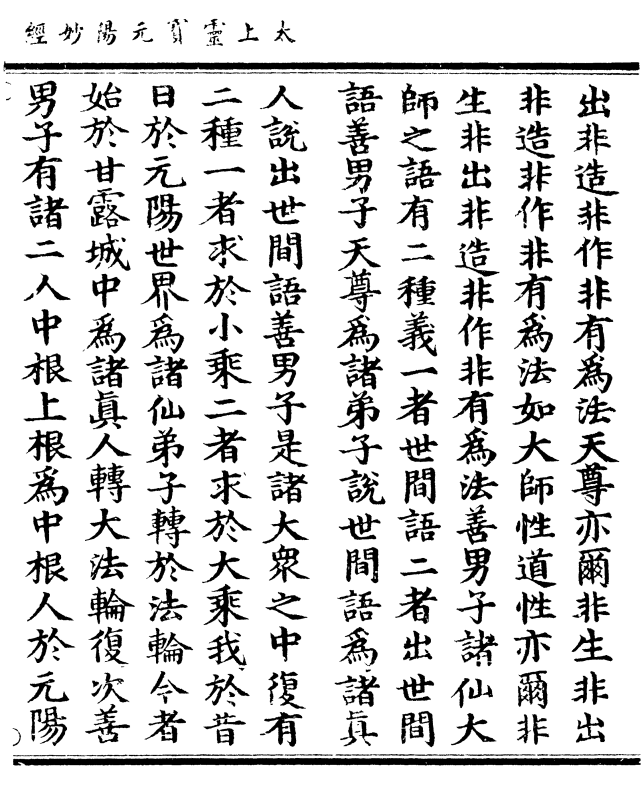 太上靈寳元陽妙經
出非造非作非有爲法天尊亦爾非生非出
非造非作非有爲法如大師性道性亦爾非
生非出非造非作非有爲法善男子諸仙大
師之語有二種義一者世間語二者出世間
語善男子天尊爲諸弟子說世間語爲諸眞
人說出世間語善男子是諸大衆之中復有
二種一者求於小乘二者求於大乘我於昔
日於元陽世界爲諸仙弟子轉於法輪今者
始於甘露城中爲諸眞人轉大法輪復次善
男子有諸二人中根上根爲中根人於元陽